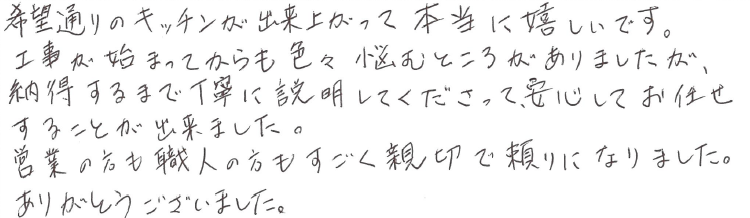 希望通りのキッチンが出来上がって本当に嬉しいです。
工事が始まってからも色々悩むところがありましたが、
納得するまで丁寧に説明してくださって、安心してお任せ
することが出来ました。
営業の方も職人の方もすごく親切で頼りになりました。
ありがとうございました。